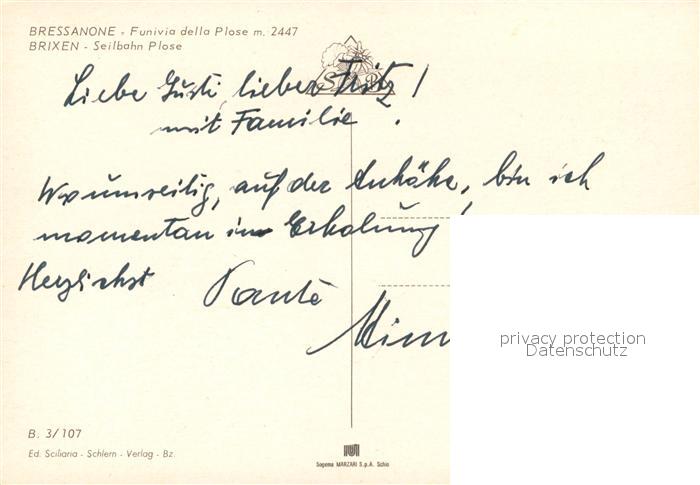 BRESSANONE - Funivia della Plose m. 2447
BRIXEN - Seilbahn Plose
Liebe Gusti, lieber Fritz!
mit Familie.
auf der Anhöhe, bin ich
momentan in Erholung!
Herzlichst Tante
privacy protection
Datenschutz
B. 3/107
Ed. Sciliaria - Schlern - Verlag - Bz.
Sagema MARZARI S.p.A. Schio